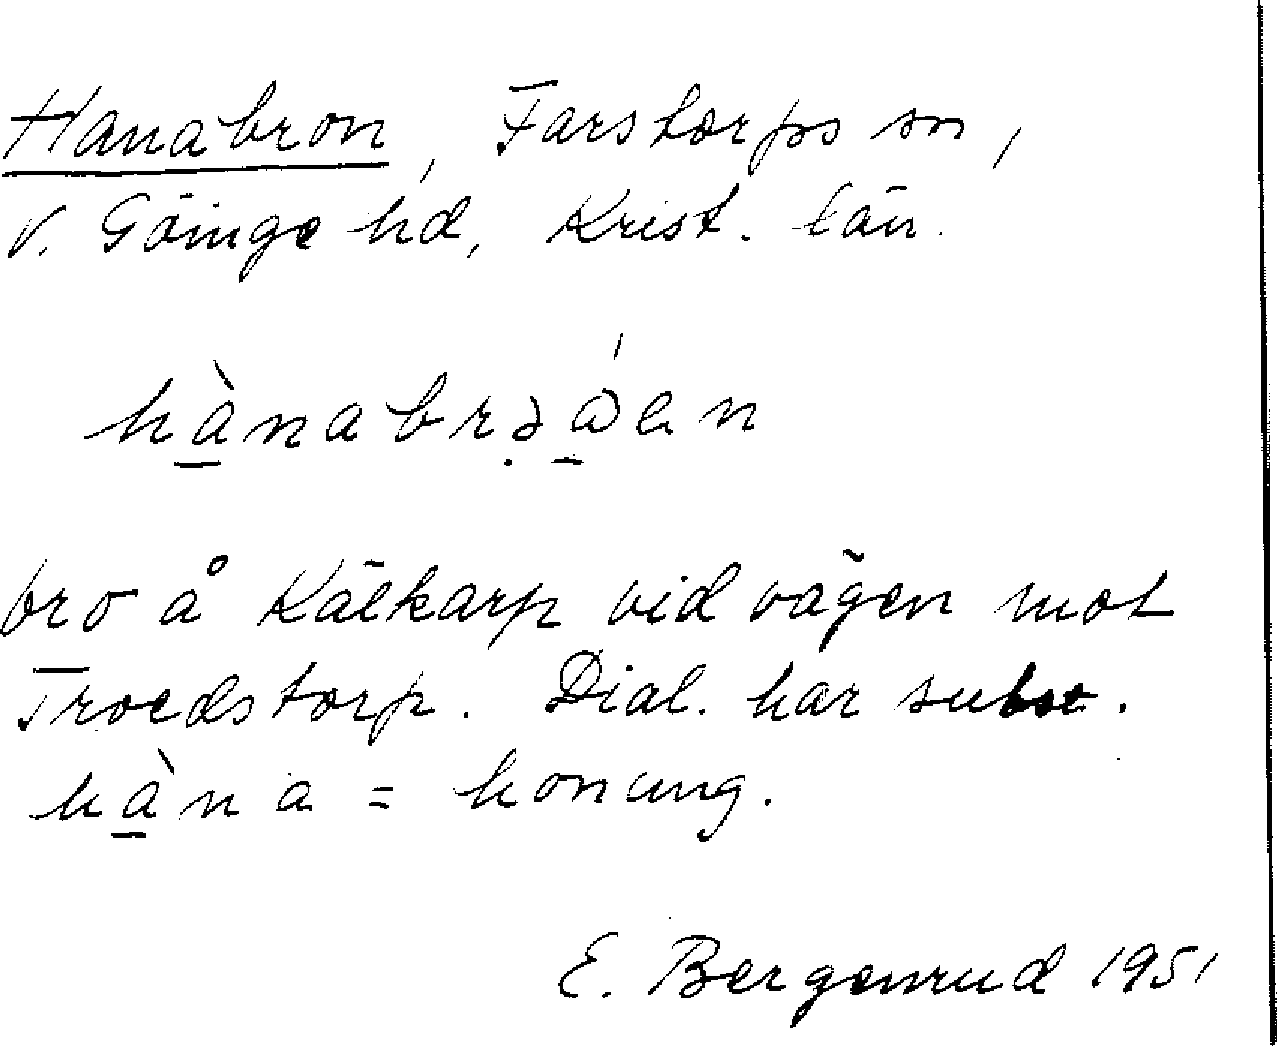 Hanabron, Farstorps sn,
V. Göinge hd, Krist. län.
hànabrəåen
bro å Kälkarp vid vägen mot
Troedstorp. Dial. har subst.
hàna = honung.
E. Bergenrud 1951